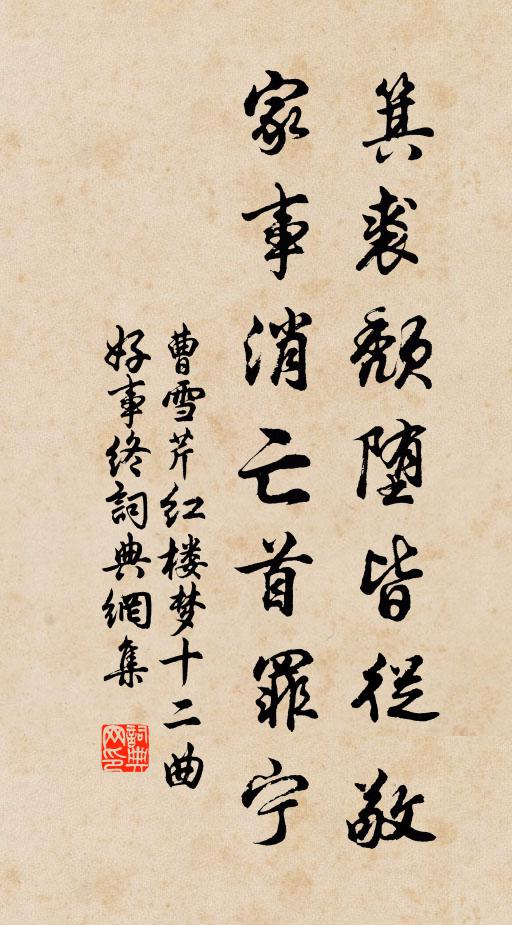 箕裘颓堕皆從敬
家事消亡首罪宁
曹雪芹红楼梦十二曲
好事终詞典網集
詞典网印